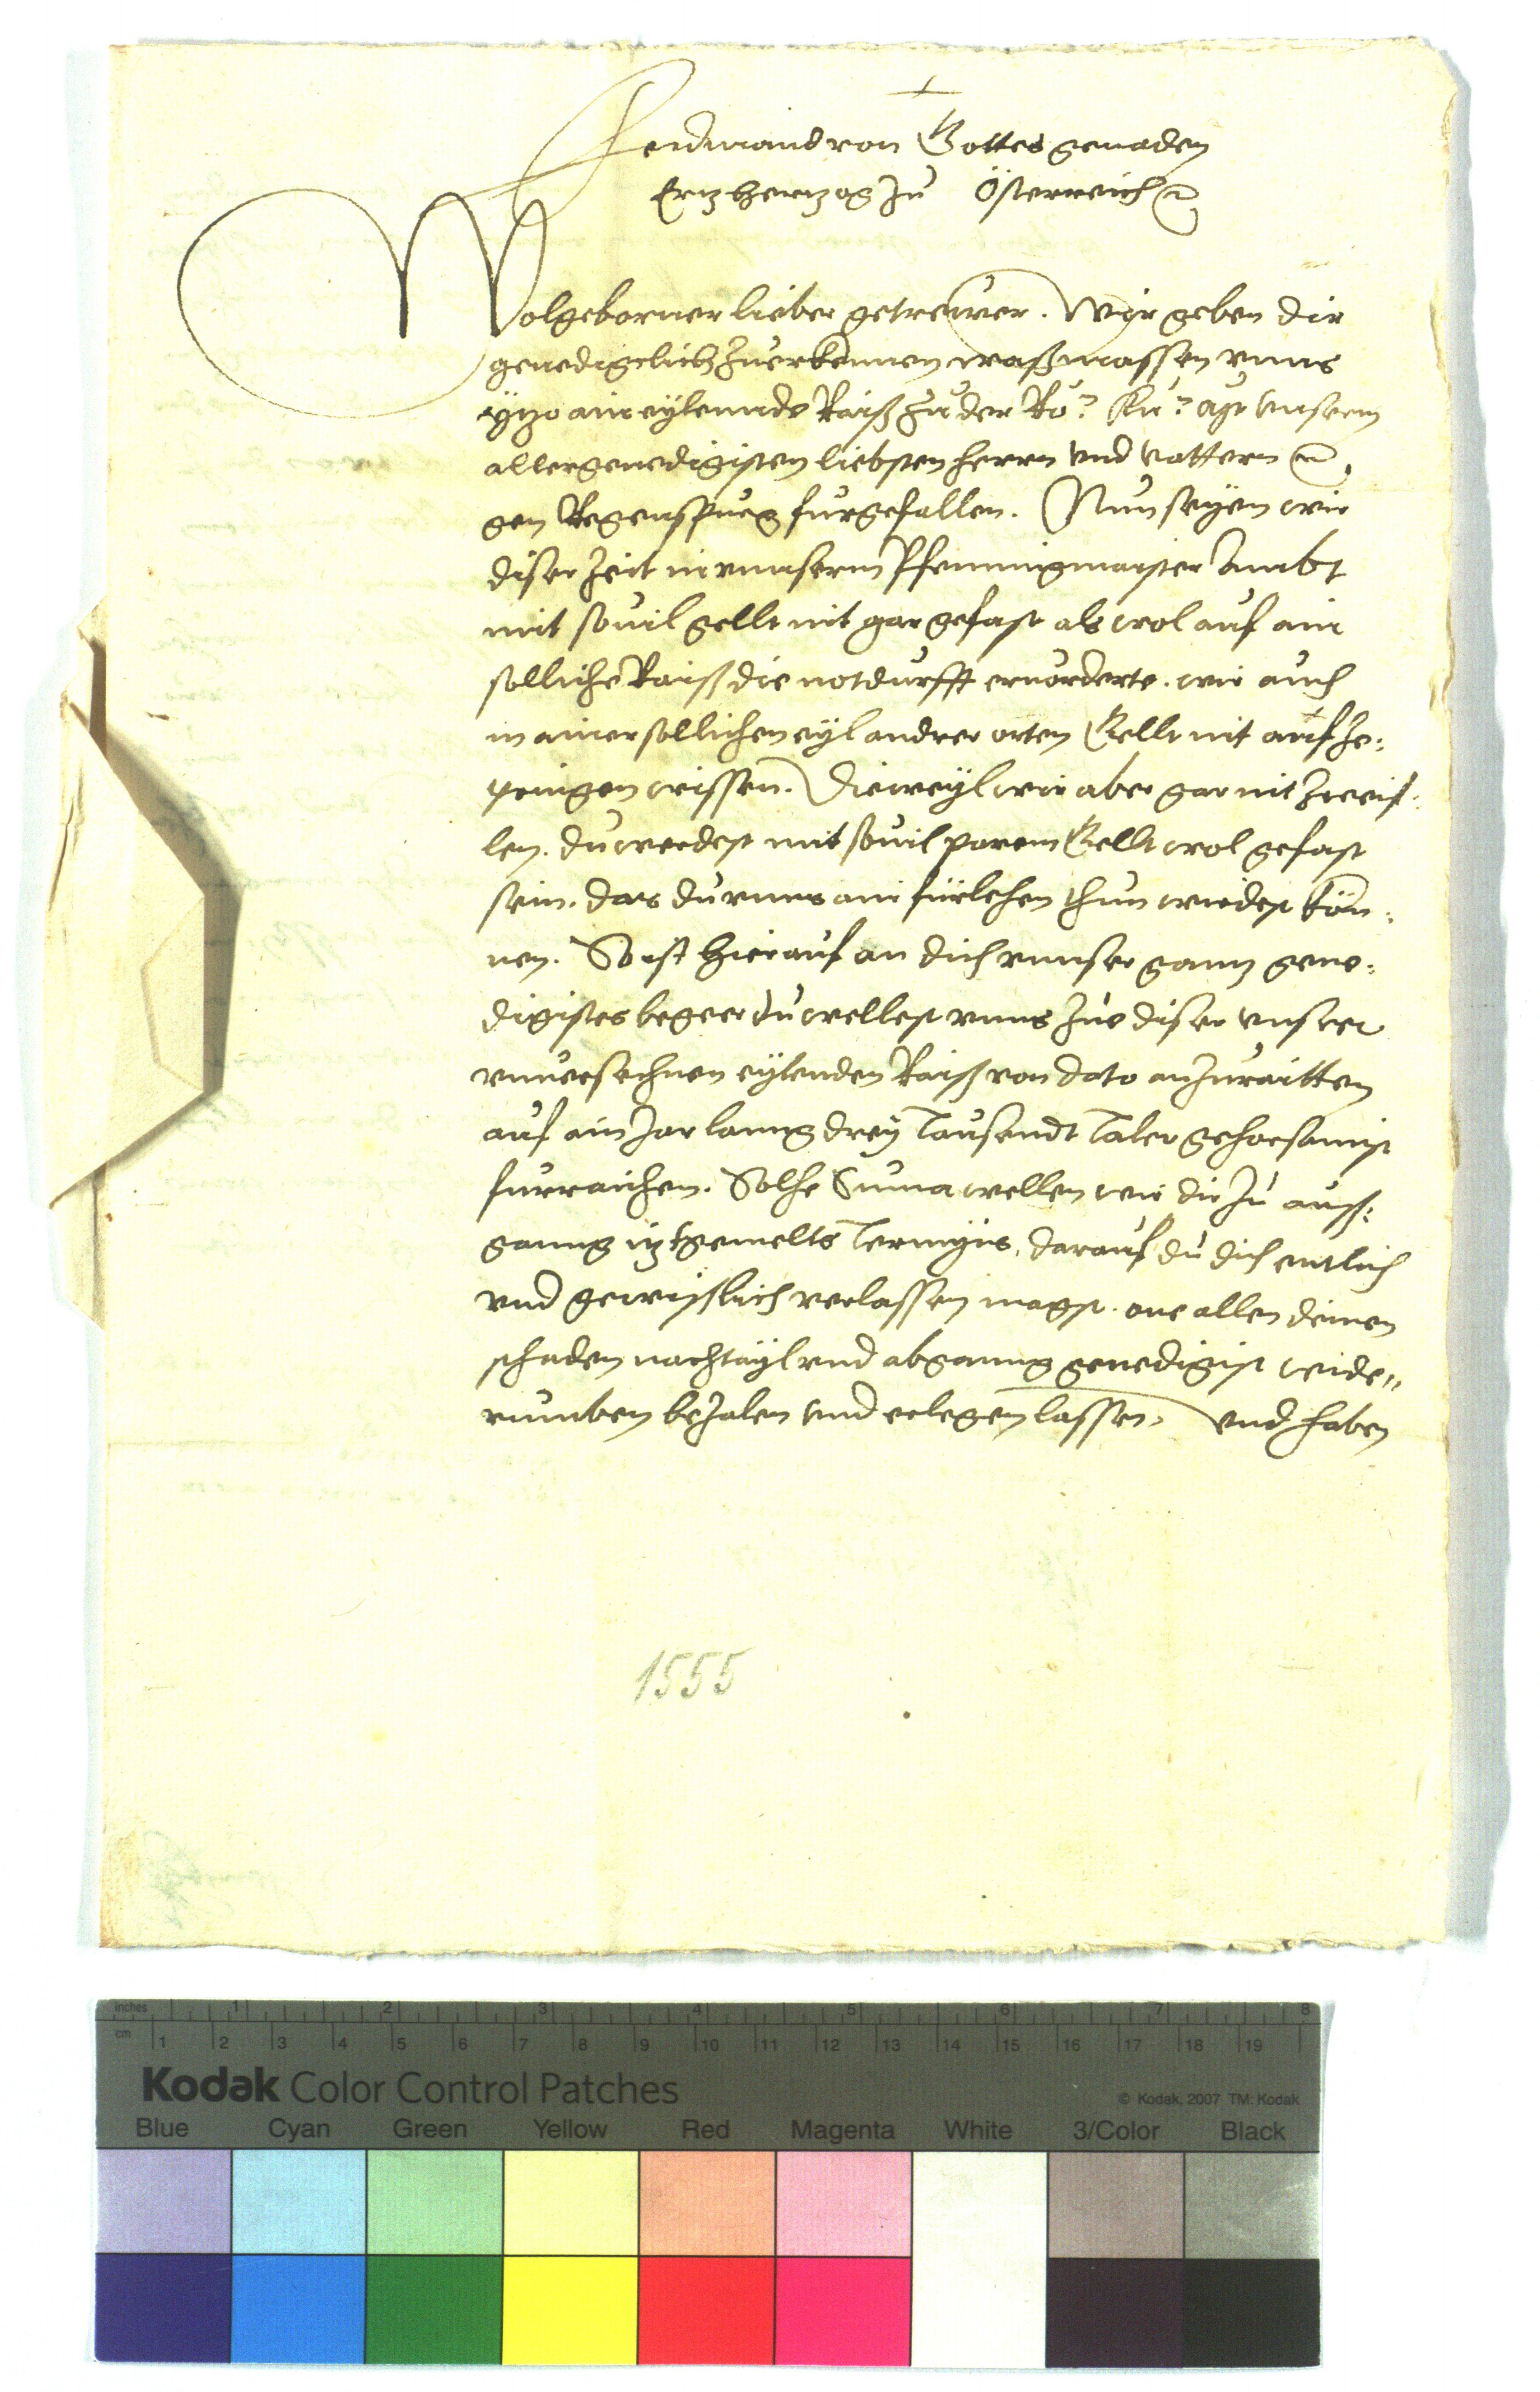 Ferdinand von Gottes genaden
Ertzhertzog zu Österreich
Wolgeborner lieber getrewer. Wir geben dir
genedigclich zuerkennen was massen vnns
ytzo ain eylennde Raiß zu der Rö: Kü: Mt vnserm
allergenedigisten liebsten herrn vnd vattern
gen Regenspurg furgefallen. Nun seyen wir
diser zeit in vnnserm Pfenningmaister Ambt
mit souil gellt nit gar gefast als wol auf ain
solliche Raiß die notdurfft eruorderte. wir auch
in ainer sollichen eyl andrer orten Gellt nit aufze-
pringen wissen. Dieweyl wir aber gar nit zweif-
len. du werdest mit souil parem Gellt wol gefast
sein. das du vnns ain fürlehen thun wirdest kön-
nen. So ist hierauf an dich vnnser gantz gene-
digistes begeer du wellest vnns zue diser vnserer
vnuersechnen eylenden Raiß von dato anzuraitten
auf ain Jar lanng drey Tausendt Taler gehorsamist
furraichen. Solhe Suma wellen wir dir zu auß-
ganng ytztgemelts Termyns, darauf du dich entlich
vnd gewißlich verlassen magst. one allen deinen
schaden nachtayl vnd abganng genedigist wide-
rumben bezalen vnd erlegen lassen, vnd haben
1555
inches 1 2 3 4 5 6 7 8
cm 1 2 3 4 5 6 7 8 9 10 11 12 13 14 15 16 17 18 19
Kodak Color Control Patches
© Kodak, 2007 TM: Kodak
Blue Cyan Green Yellow Red Magenta White 3/Color Black